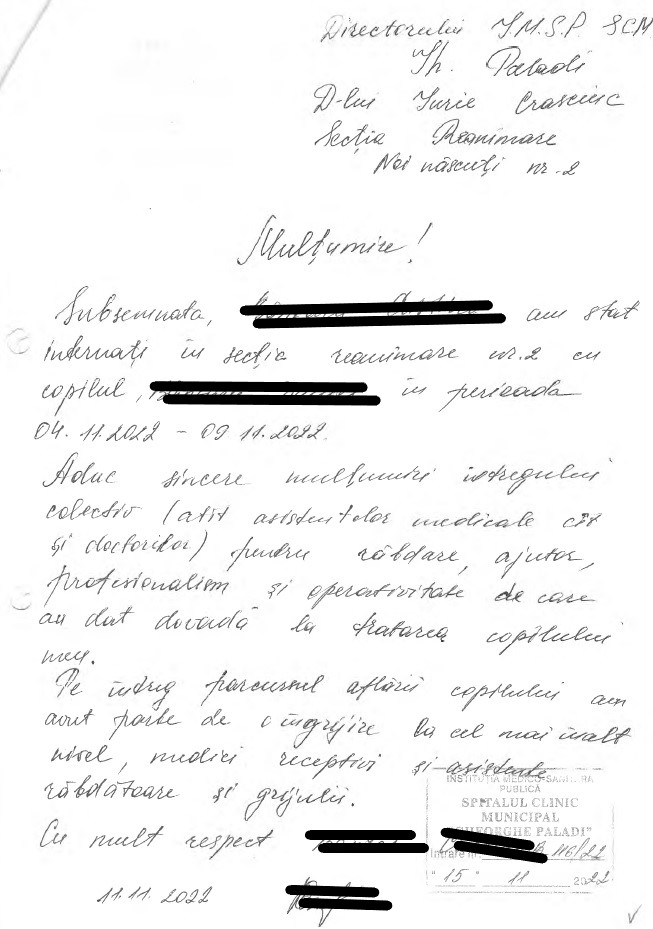 Directorului I.M.S.P. SCM
Gh. Paladi
D-lui Iurie Crasciuc
Secția Reanimare
Noi născuți nr. 2
Mulțumire!
Subsemnata, am stat
internați în secția reanimare nr. 2 cu
copilul, în perioada
04.11.2022 - 09 11.2022.
Aduc sincere mulțumiri întregului
colectiv (atît asistentelor medicale cît
și doctorilor) pentru răbdare, ajutor,
profesionalism și operativitate de care
au dat dovadă la tratarea copilului
meu.
Pe întreg parcursul aflării copilului am
avut parte de o îngrijire la cel mai înalt
nivel, medici receptivi și asistente
răbdătoare și grijulii.
INSTITUȚIA MEDICO-SANITARA
PUBLICĂ
SPITALUL CLINIC
MUNICIPAL
"GHEORGHE PALADI"
Cu mult respect
Intrare nr. B 116/22
"15" 11 2022
11.11.2022